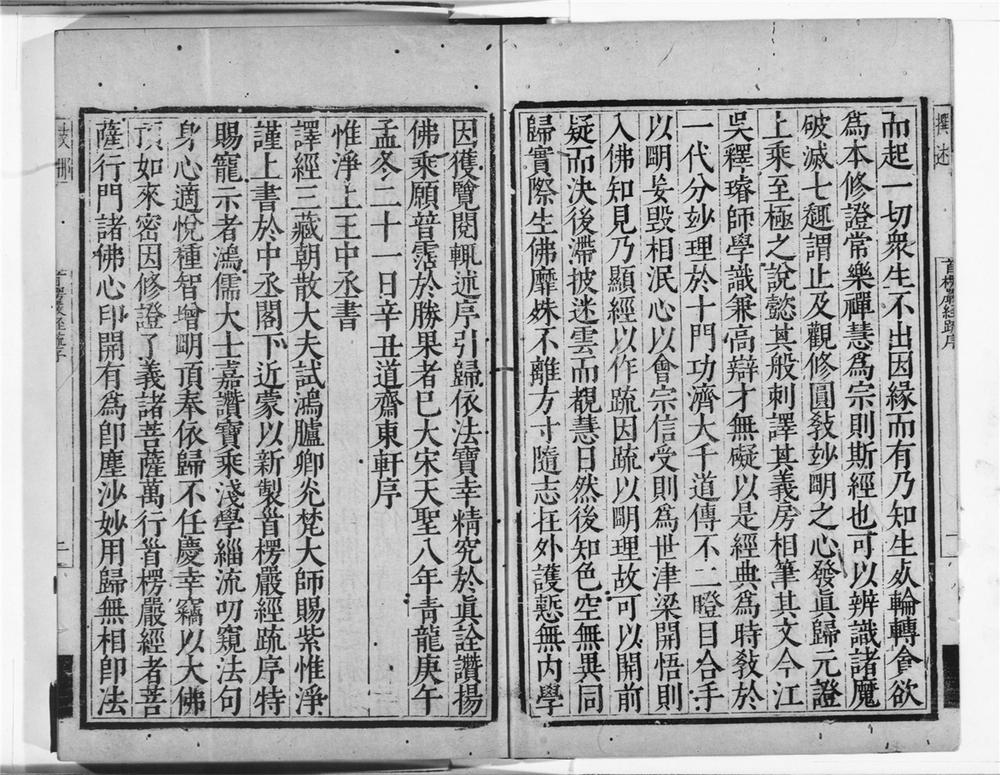 而起一切衆生不出因緣而有乃知生死輪轉貪欲
爲本修證常樂禪慧爲宗則斯經也可以辨識諸魔
破滅七趣謂止及觀修圓教玅明之心發眞歸元證
上乘至極之說懿其般剌譯其義房相筆其文今江
吳釋璿師學識兼高辯才無礙以是經典爲時教於
一代分玅理於十門功濟大千道傳不二瞪目合手
以明妄毀相泯心以會宗信受則爲世津梁開悟則
入佛知見乃顯經以作疏因疏以明理故可以開前
疑而決後滯披迷雲而覩慧日然後知色空無異同
歸實際生佛靡殊不離方寸隨志在外護慙無內學
因獲覽閱輒述序引歸依法寶幸精究於眞詮讚揚
佛乘願普霑於勝果者巳大宋天聖八年青龍庚午
孟冬二十一日辛丑道齋東軒序
惟淨上王中丞書
譯經三藏朝散大夫試鴻臚卿光梵大師賜紫惟淨
謹上書於中丞閣下近蒙以新製首楞嚴經疏序特
賜寵示者鴻儒大士嘉讚寶乘淺學緇流叨窺法句
身心適悅種智增明頂奉依歸不任慶幸竊以大佛
頂如來密因修證了義諸菩薩萬行首楞嚴經者菩
薩行門諸佛心印開有爲卽塵沙妙用歸無相卽法
撰述
首楞嚴經疏序
一
首楞嚴經疏序
二